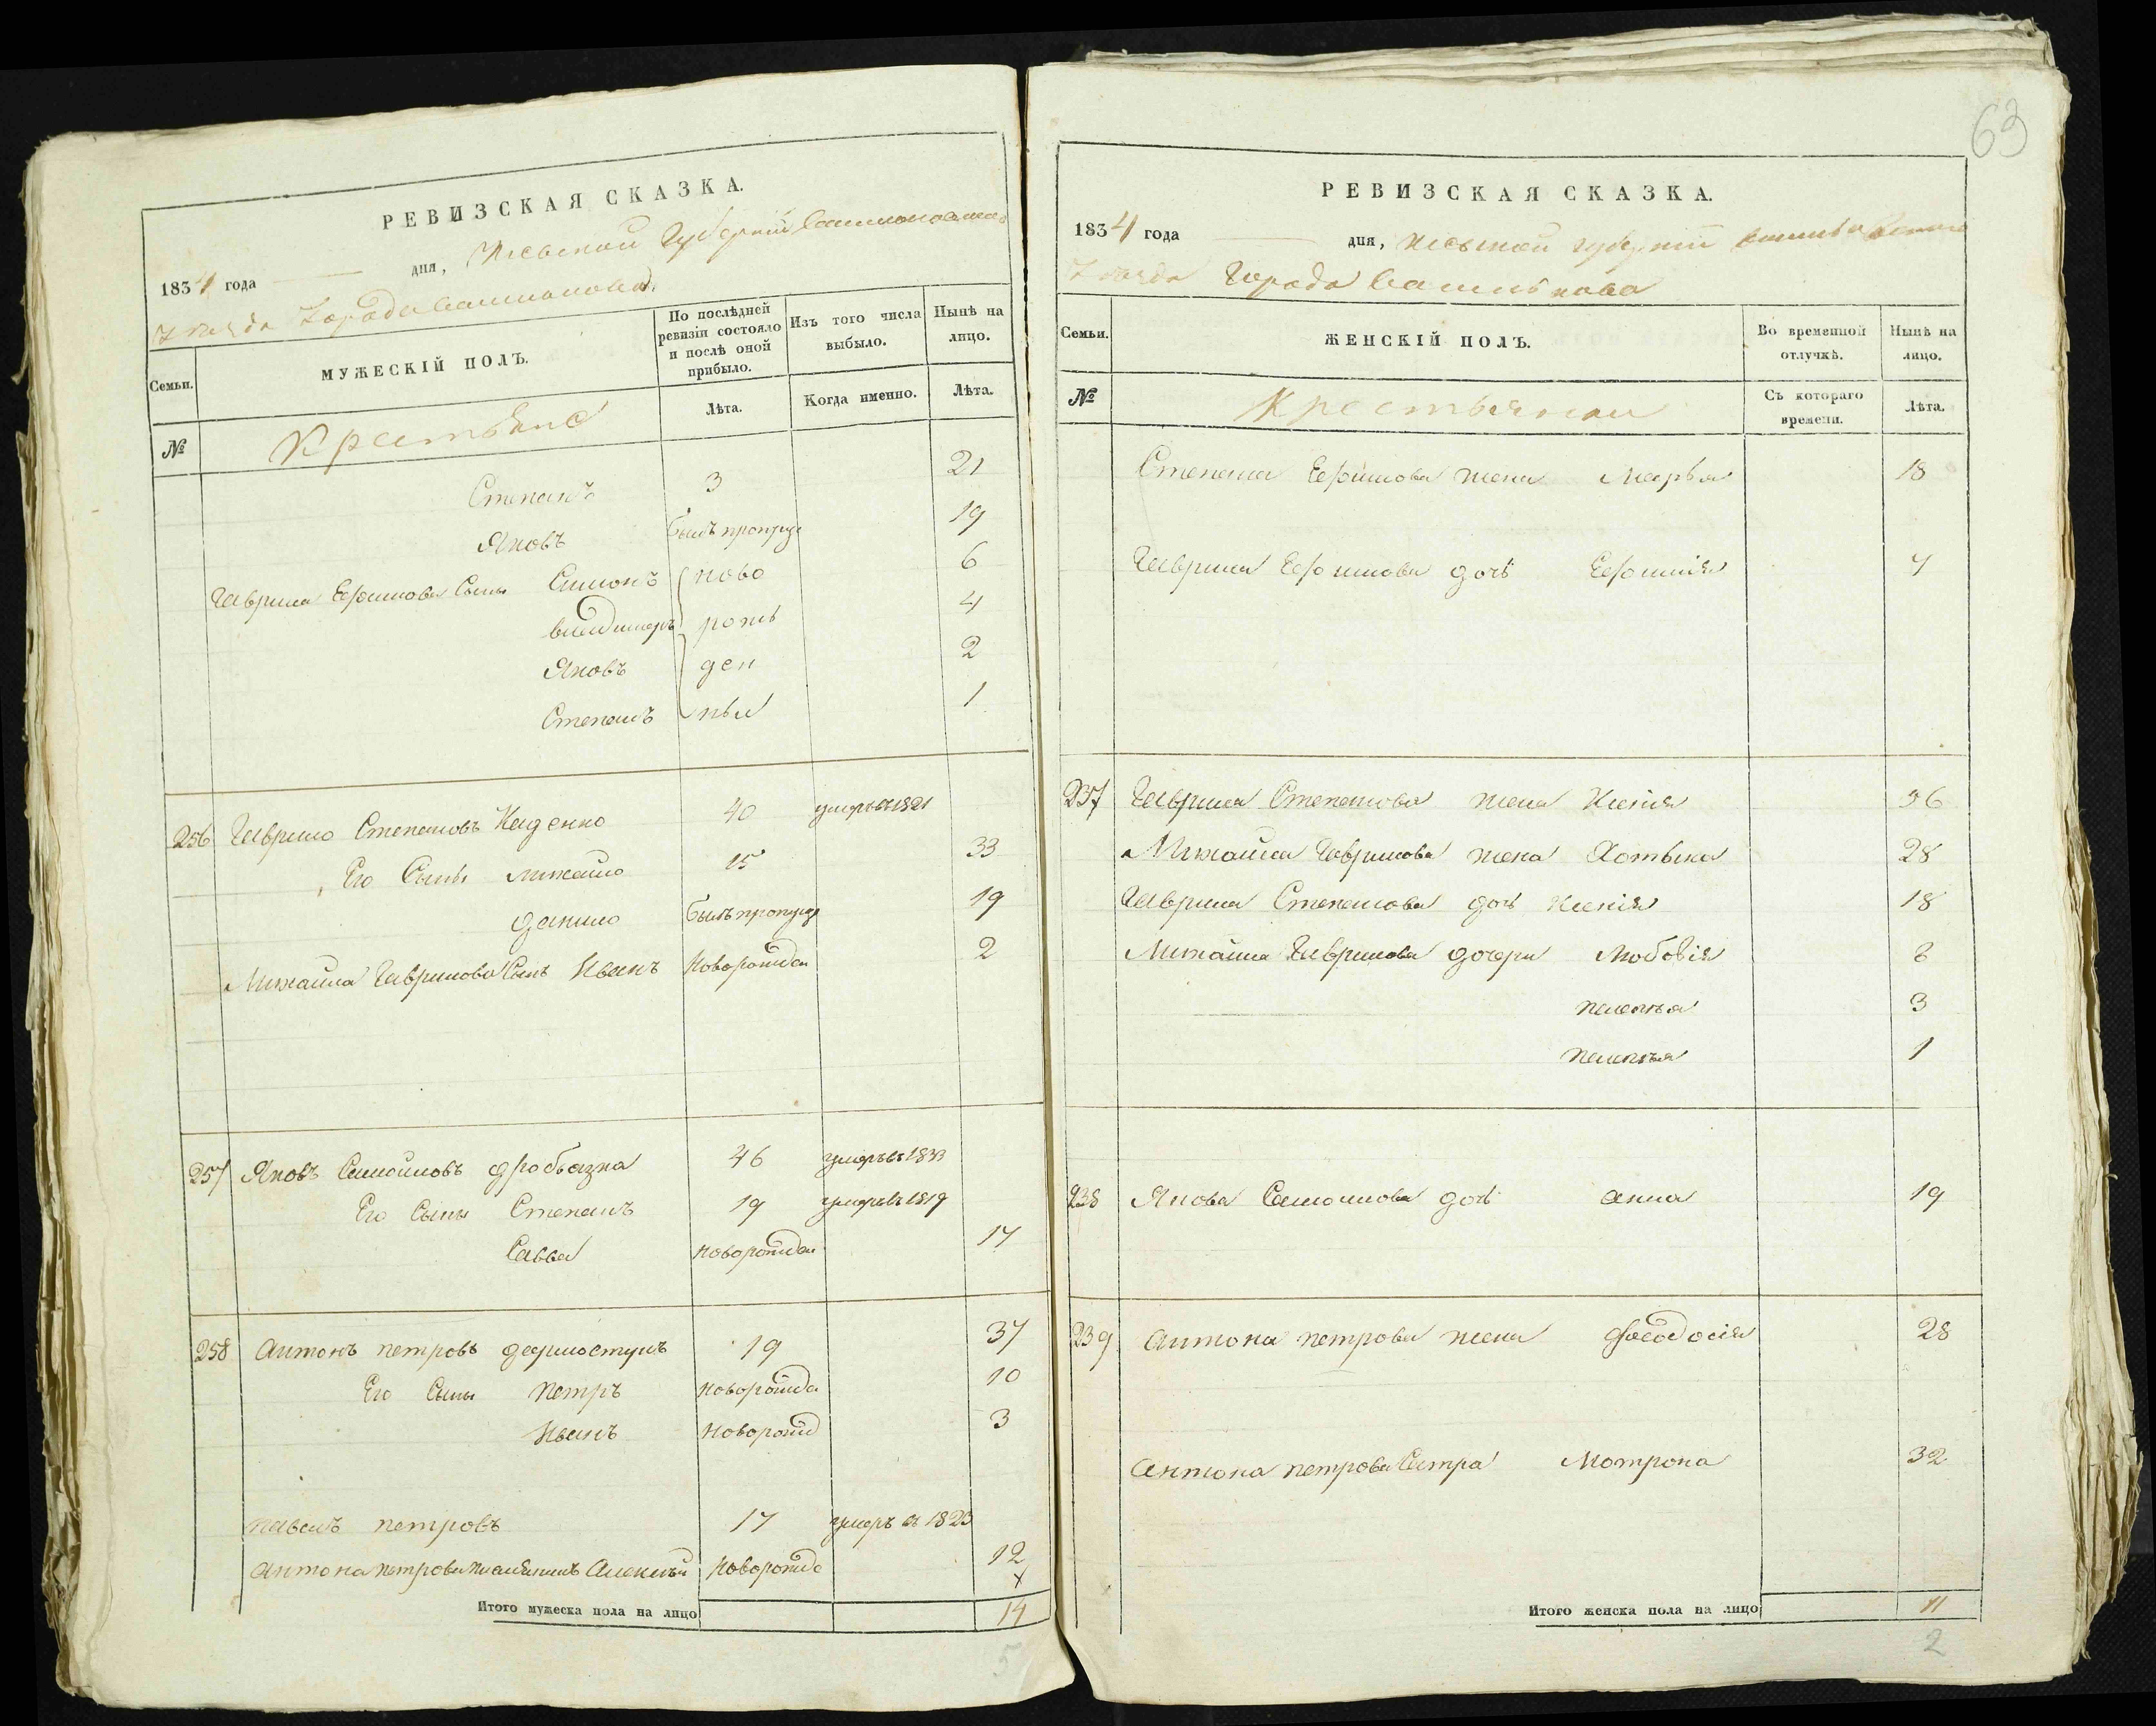 63
РЕВИЗСКАЯ СКАЗКА.
1834 года дня, Кіевской Губерніи Васильковскаго
Уезда Города Василькова.
Семьи.
МУЖЕСКІЙ ПОЛЪ.
По послѣдней ревизіи состояло и послѣ оной прибыло.
Изъ того числа выбыло.
Нынѣ на лицо.
№
Крестьяне
Лѣта.
Когда именно.
Лѣта.
Степанъ 3 21
Яковъ былъ пропущ 19
Гаврила Ефимова Сыны Симонъ ново 6
владимеръ рож 4
Яковъ ден 2
Степанъ ныи 1
256 Гаврило Степановъ Каденко 40 умеръ въ 1821
Его Сыны михайло 15 33
данило былъ пропущ 19
Михайла Гаврилова Сынъ Иванъ Новорожден 2
257 Яковъ Самойловъ дробязка 46 умеръ въ 1833
Его Сыны Степанъ 19 умеръ въ 1819
Савва новорожден 17
258 Антонъ петровъ 19 37
Его Сыны петръ новорожде 10
Иванъ новорожд 3
павелъ петровъ 17 умеръ въ 1823
Антона петрова племянникъ Алексѣй Новорожде 12
х
Итого мужеска пола на лицо 14
5
РЕВИЗСКАЯ СКАЗКА.
1834 года дня, Кіевской губерніи Васильковскаго
Уезда Города Василькова
Семьи.
ЖЕНСКІЙ ПОЛЪ.
Во временной отлучкѣ.
Нынѣ на лицо.
№
Крестьянки
Съ котораго времени.
Лѣта.
Степана Ефимова жена Марья 18
Гаврила Ефимова дочь Ефимія 7
237 Гаврила Степанова жена Ксенія 56
Михайла Гаврилова жена Хотьина 28
Гаврила Степанова дочь Ксенія 18
Михайла Гаврилова дочери Любовія 8
пелагія 3
1
238 Якова Самоилова дочь анна 19
239 Антона петрова жена феодосія 28
Антона петрова Сестра Мотрона 32
Итого женска пола на лицо 11
2